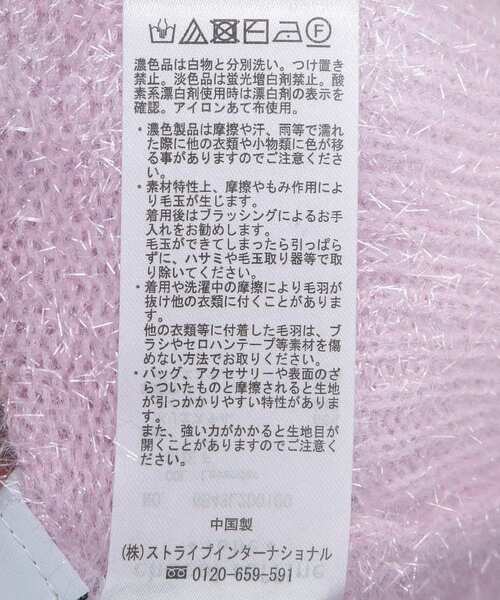 濃色品は白物と分別洗い。つけ置き
禁止。淡色品は蛍光増白剤禁止。酸
素系漂白剤使用時は漂白剤の表示を
確認。アイロンあて布使用。
・濃色製品は摩擦や汗、雨等で濡れ
た際に他の衣類や小物類に色が移
る事がありますのでご注意くださ
い。
・素材特性上、摩擦やもみ作用によ
り毛玉が生じます。
着用後はブラッシングによるお手
入れをお勧めします。
毛玉ができてしまったら引っぱら
ずに、ハサミや毛玉取り器等で取
り除いてください。
・着用や洗濯中の摩擦により毛羽が
抜け他の衣類に付くことがありま
す。
他の衣類等に付着した毛羽は、ブ
ラシやセロハンテープ等素材を傷
めない方法でお取りください。
・バッグ、アクセサリーや表面のざ
らついたものと摩擦されると生地
が引っかかりやすい特性がありま
す。
また、強い力がかかると生地目が
開くことがありますのでご注意く
ださい。
中国製
(株)ストライプインターナショナル
0120-659-591